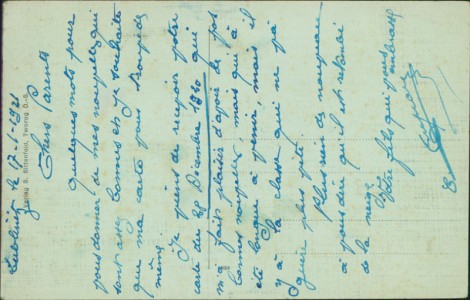 Lublinitz le 17-1-1921
Chers Parents
Quelques mots pour
vous donner de mes nouvelles qui
sont assez bonnes et je souhaite
que ma carte vous trouve de
même.
Je viens de recevoir votre
carte du 28 Décembre 1920 qui
m'a fait plaisir d'avoir de vos
bonnes nouvelles, mais qui a
été longue à venir, mais il
y a la classe qui ne va
guère plus vite
Plus rien de nouveau
à vous dire qu'il est retombé
de la neige.
Votre fils qui vous
embrasse
Verlag S. Bitterfeld, Tworog O.-S.